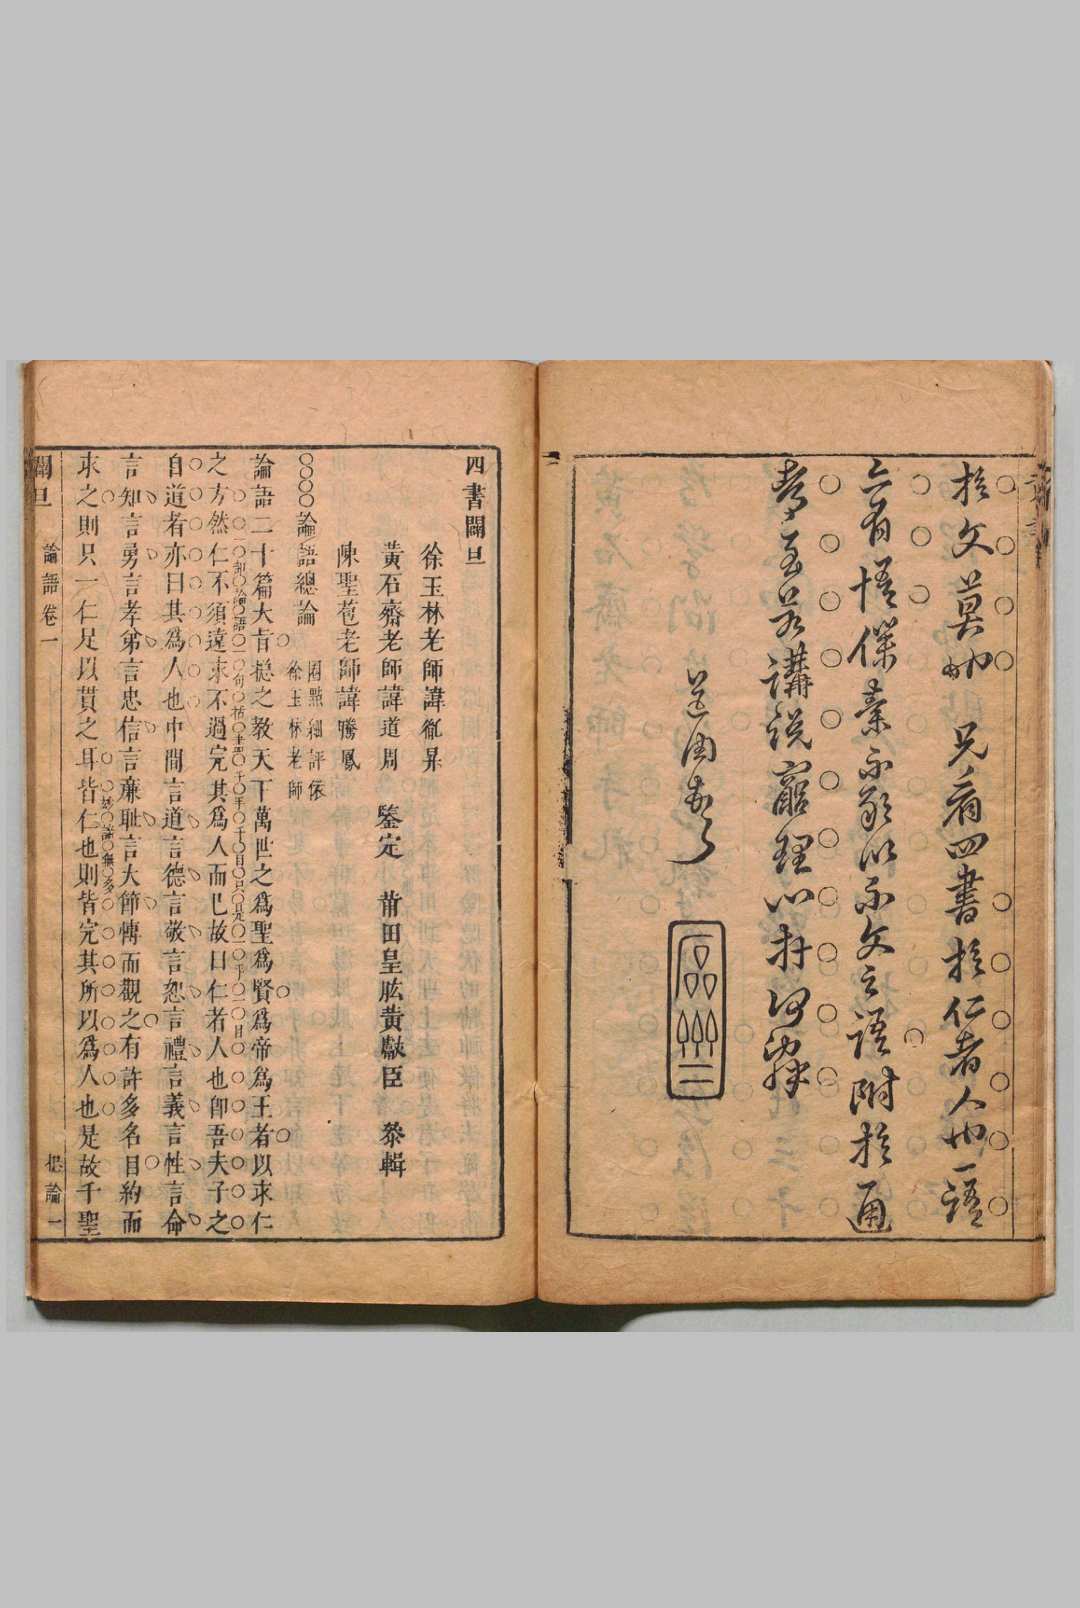 於文莫如 兄看四書於仁者人也一語
亦有悟僕素不敢以示文之語附於通
靑至若講說窮理以村
道周
四書闡旦
徐玉林老師諱𪠘昇
黃石齋老師諱道周 鑒定 莆田皇肱黃獻臣 叅輯
陳聖苞老師諱騰鳳
○○○○論語總論 圈點細評依徐玉林老師
論語二十篇大旨摠之教天下萬世之爲聖爲賢爲帝爲王者以求仁
之方然仁不須遠求不過完其爲人而已故曰仁者人也卽吾夫子之
自道者亦曰其爲人也中間言道言德言敬言恕言禮言義言性言命
言知言勇言孝弟言忠信言亷耻言大節傳而觀之有許多名目約而
求之則只一仁足以貫之耳皆仁也則皆完其所以爲人也是故千聖
闡旦 論語卷一 總論 一